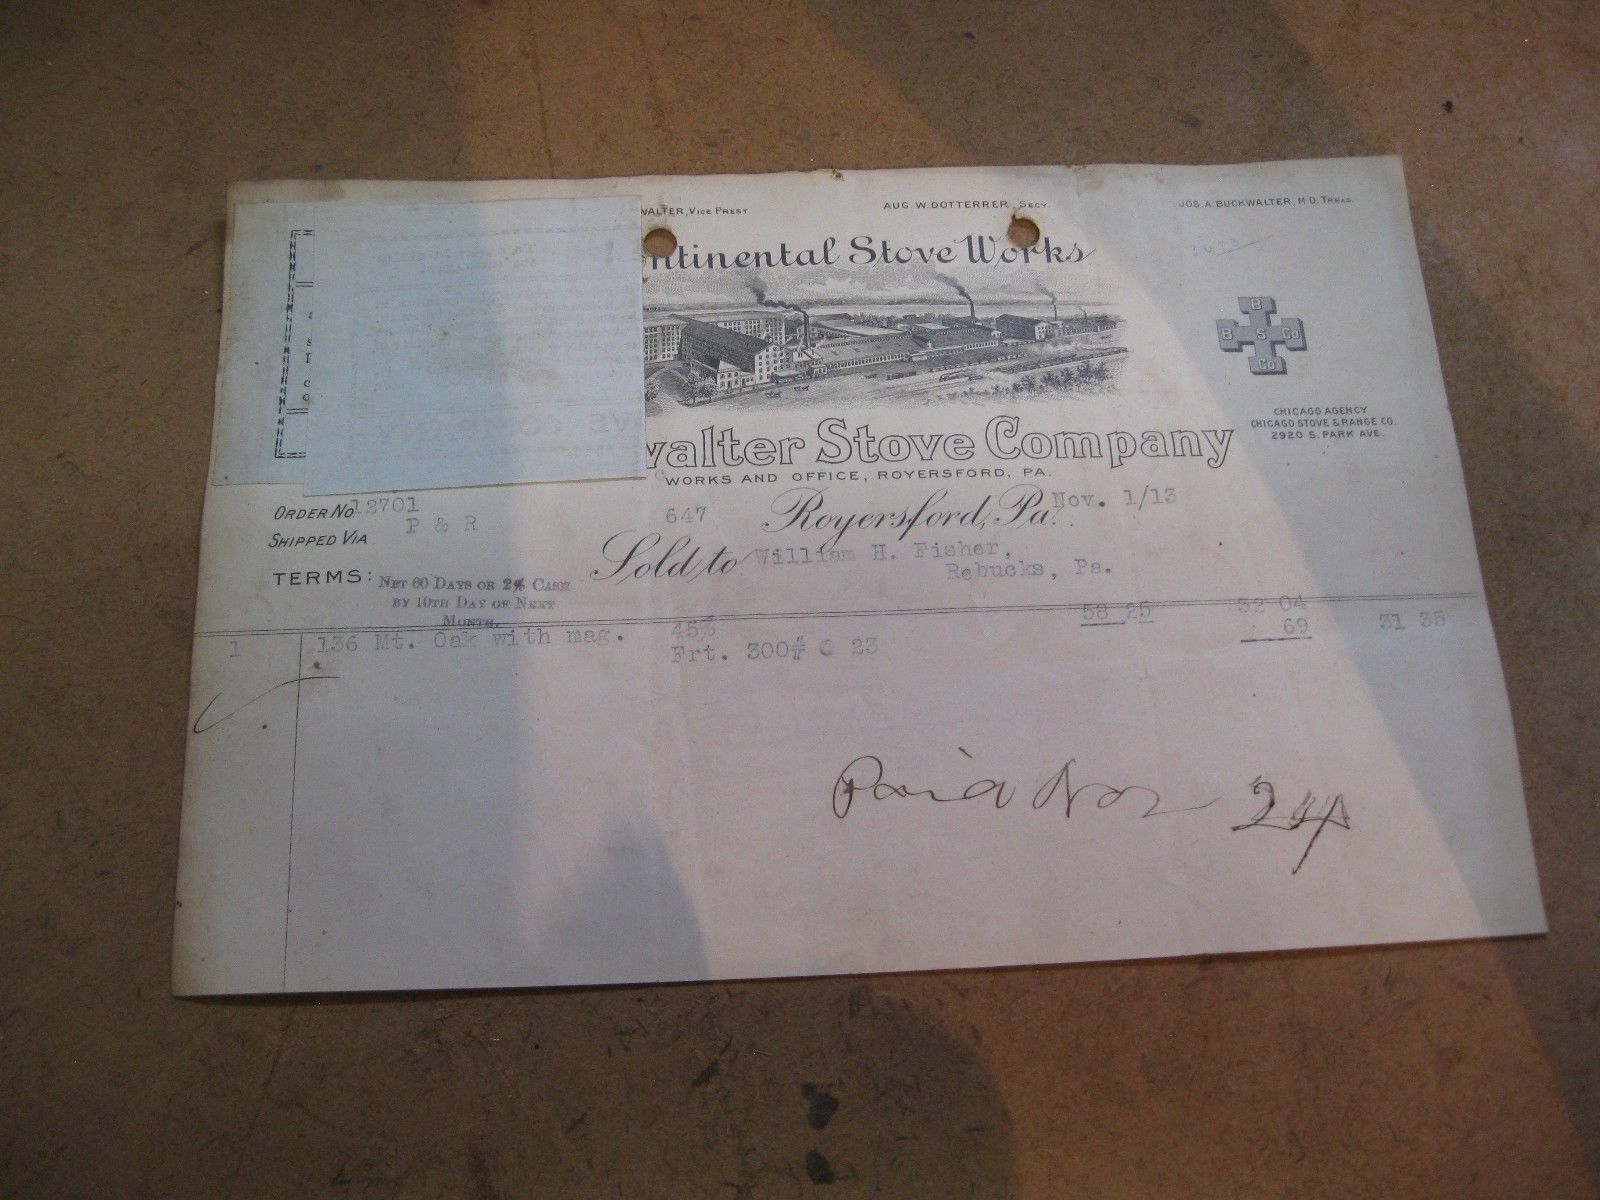 WALTER, VICE PREST.
AUG. W. DOTTERRER, SECY.
JOS. A. BUCKWALTER, M D. TREAS.
ntinental Stove Works
B
B S Co
Co
CHICAGO AGENCY
CHICAGO STOVE & RANGE CO.
2920 S. PARK AVE.
walter Stove Company
WORKS AND OFFICE, ROYERSFORD, PA.
ORDER NO. 12701
647 Royersford, Pa. Nov. 1/13
SHIPPED VIA P & R
Sold to William H. Fisher,
Rebucks, Pa.
TERMS: NET 60 DAYS OR 2% CASH
BY 10TH DAY OF NEXT
MONTH.
1 136 Mt. Oak with mag. 45% 58 25 32 04
Frt. 300# @ 23 69 31 35
Paid Nov 24